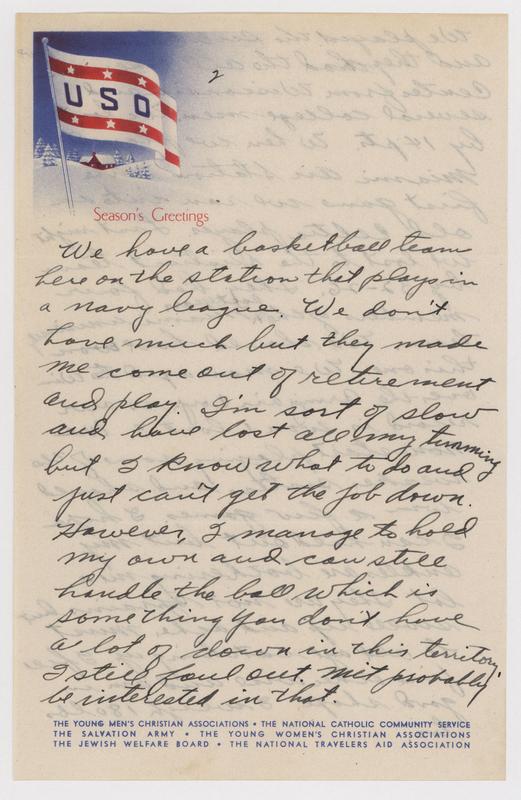 USO
2
Season's Greetings
We have a basketball team
here on the station that plays in
a navy league. We don't
have much but they made
me come out of retirement
and play. I'm sort of slow
and have lost all my timming
but I know what to do and
just can't get the job down.
However, I manage to hold
my own and can still
handle the ball which is
something you don't have
a lot of down in this territory.
I still foul out. Mit probably
be interested in that.
THE YOUNG MEN'S CHRISTIAN ASSOCIATIONS • THE NATIONAL CATHOLIC COMMUNITY SERVICE
THE SALVATION ARMY • THE YOUNG WOMEN'S CHRISTIAN ASSOCIATIONS
THE JEWISH WELFARE BOARD • THE NATIONAL TRAVELERS AID ASSOCIATION